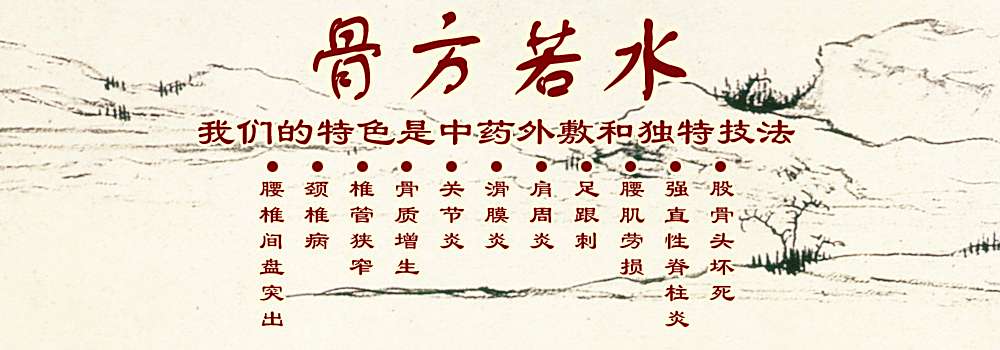 骨方若水
我们的特色是中药外敷和独特技法
腰椎间盘突出
颈椎病
椎管狭窄
骨质增生
关节炎
滑膜炎
肩周炎
足跟刺
腰肌劳损
强直性脊柱炎
股骨头坏死